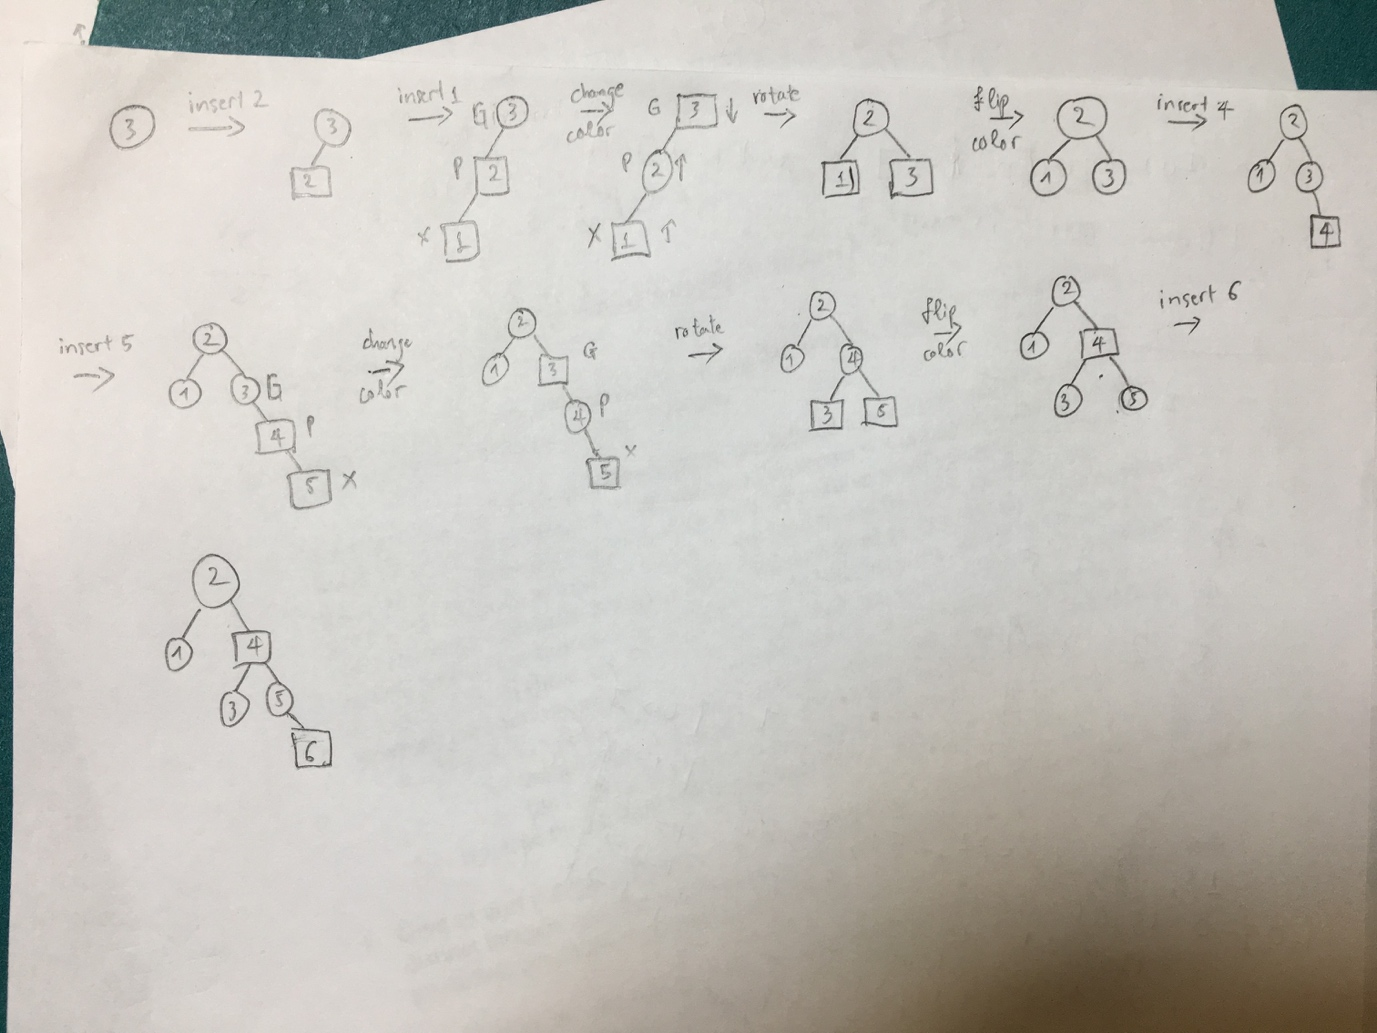 3 insert 2 3 2
insert 1 G 3 P 2 X 1
change color G 3 P 2 X 1
rotate 2 1 3
flip color 2 1 3
insert 4 2 1 3 4
insert 5 2 1 3 G 4 P 5 X
change color 2 1 3 G 4 P 5 X
rotate 2 1 4 3 5
flip color 2 1 4 3 5
insert 6
2
1 4
3 5
6